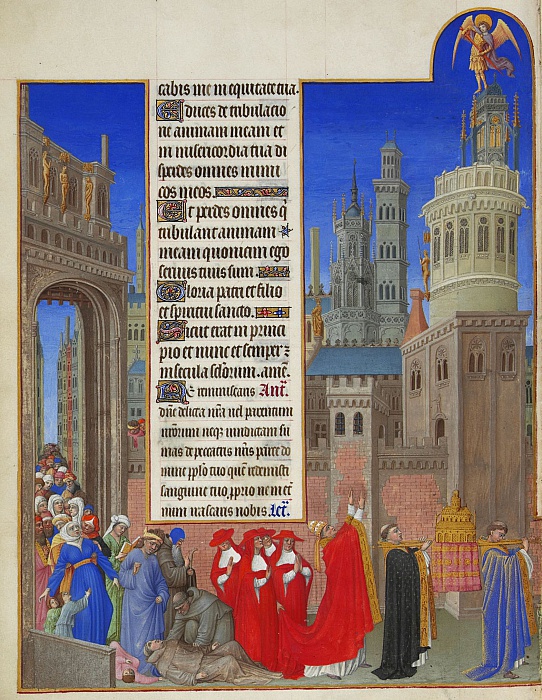 cabis me in equitate tua.
Educes de tribulacio
ne animam meam et
in misericordia tua di
sperdes omnes inimi
cos meos.
Et perdes omnes q
tribulant animam
meam quoniam ego
seruus tuus sum.
Gloria patri et filio
et spiritui sancto.
Sicut erat in princi
pio et nunc et semper ⁊
in secula seculorum. amē.
Ne reminiscaris Añ.
dñe delicta nr̃a uel parentum
nrōrum neq; uindictam su
mas de peccatis nr̃is parce do
mine pplo tuo quē redemisti
sanguine tuo, pprio ne in et
num irascaris nobis.